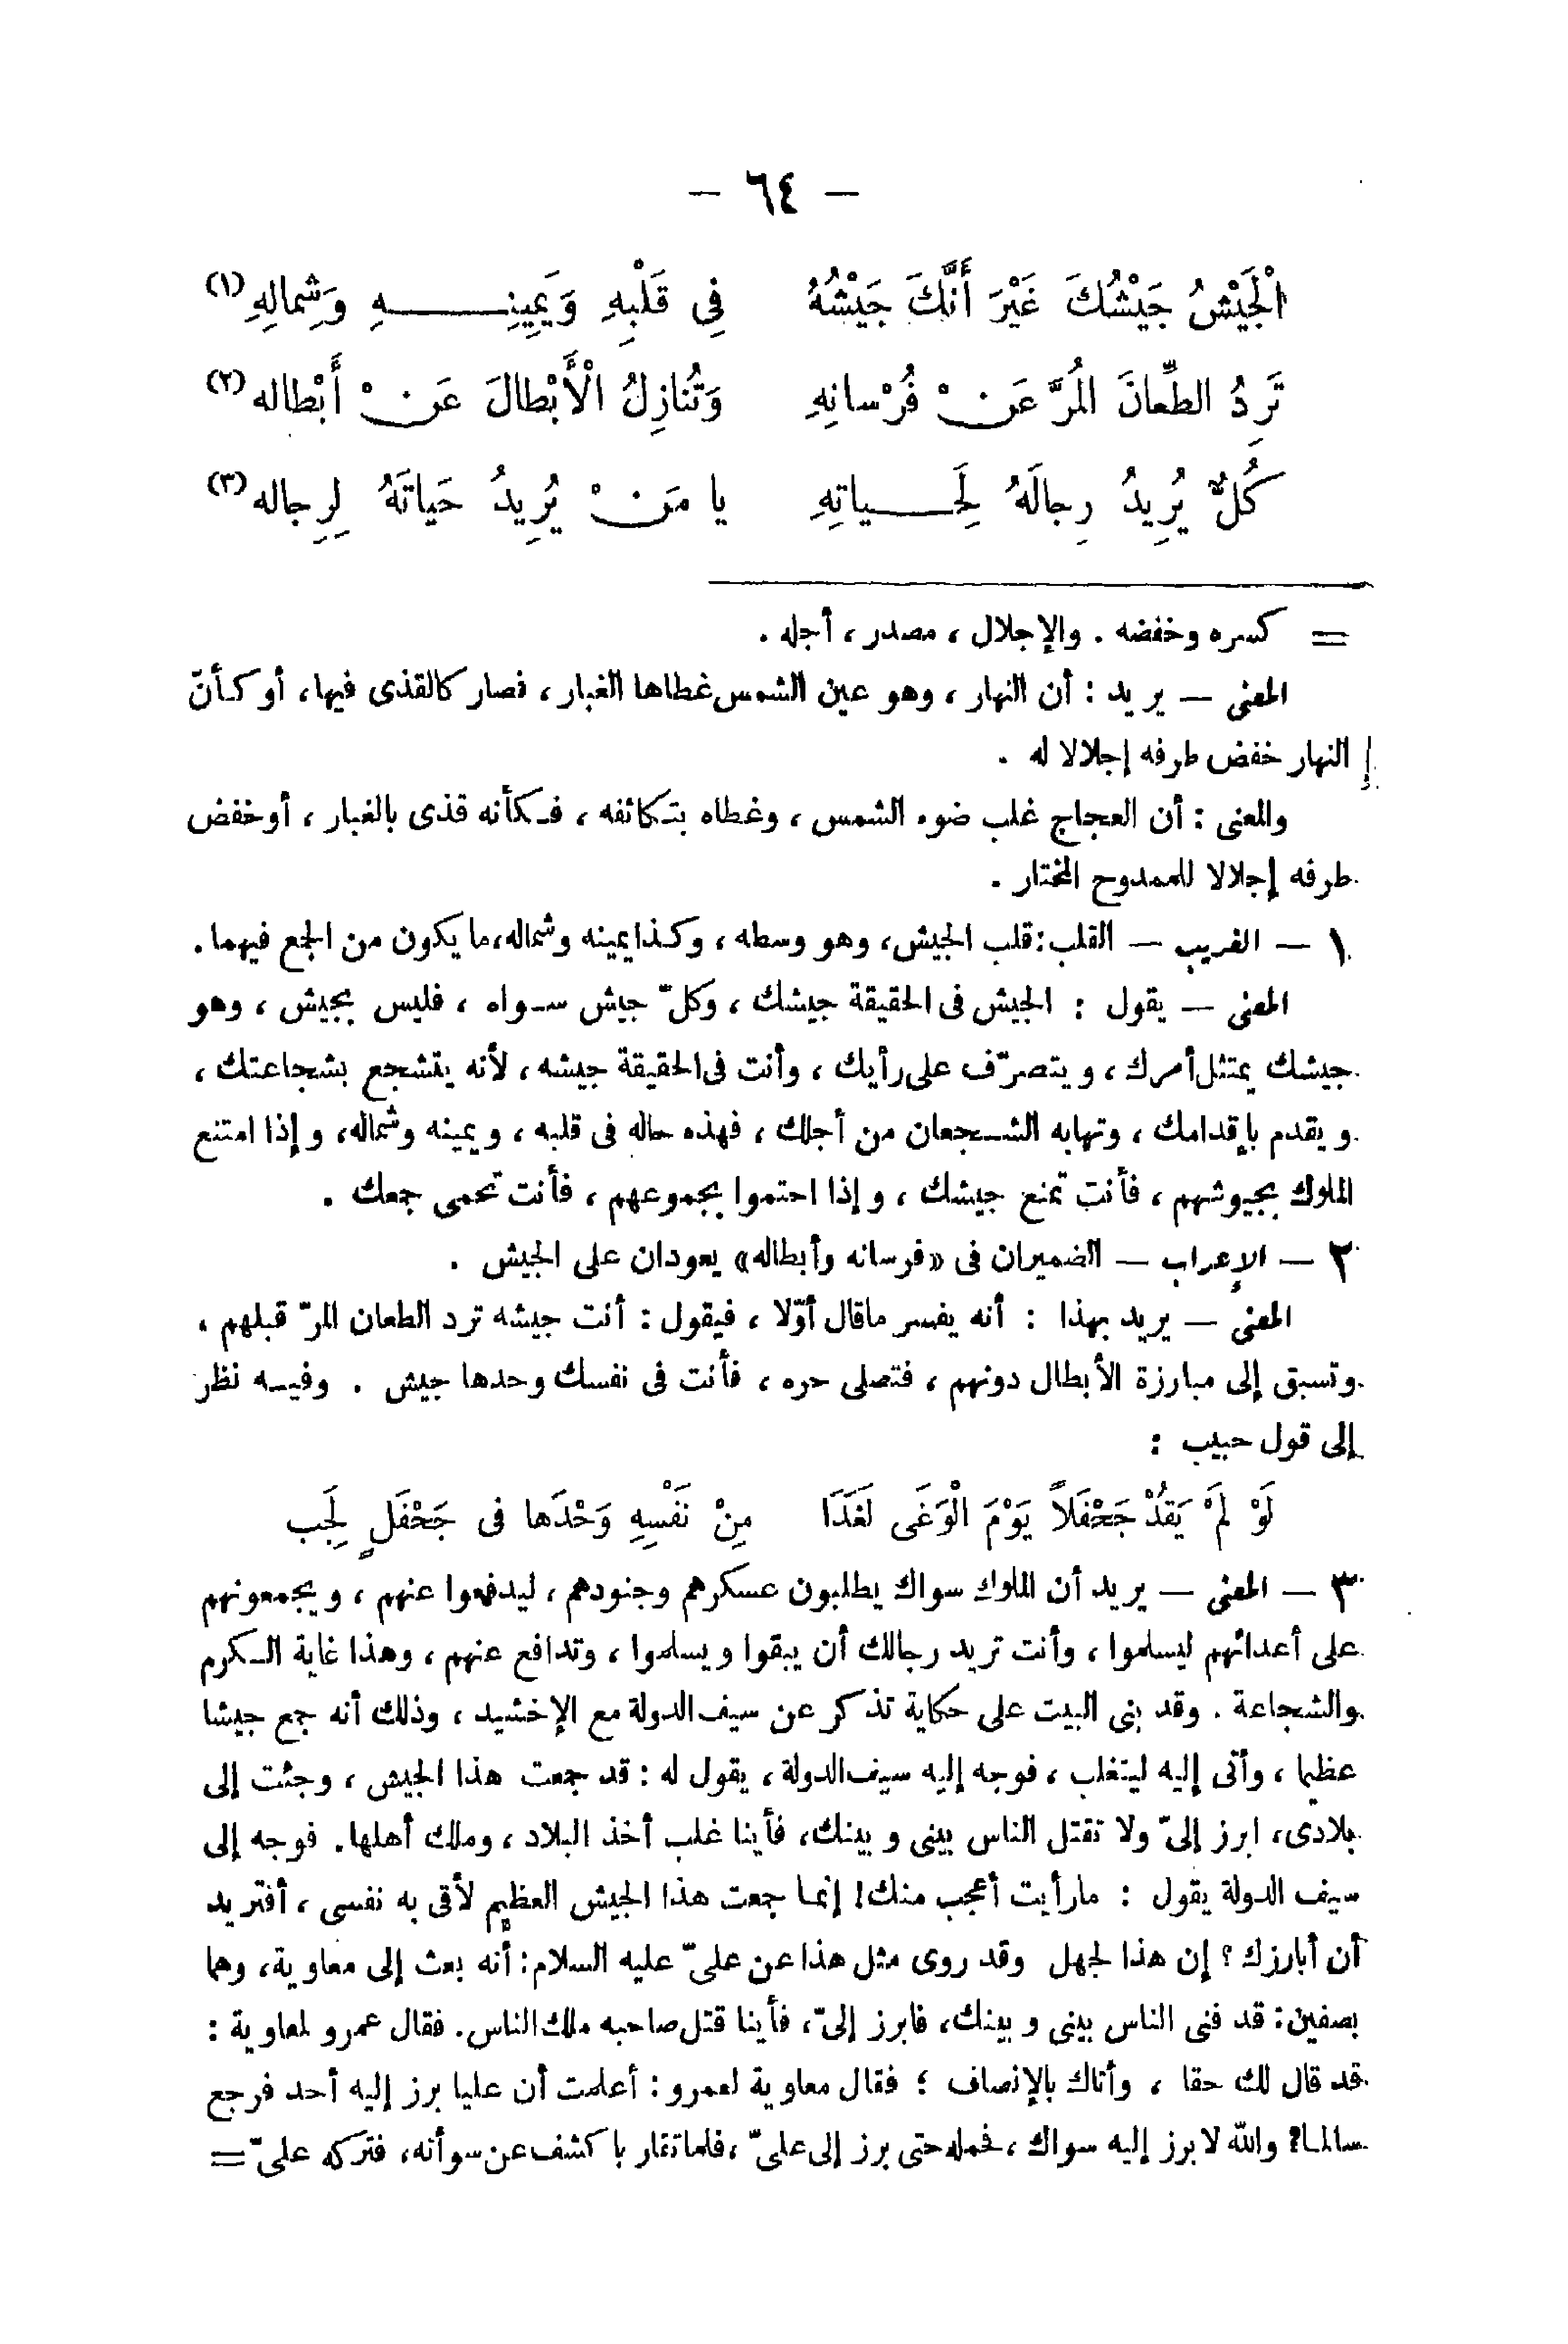 - ٦٤ -
الْجَيْشُ جَيْشُكَ غَيْرَ أَنَّكَ جَيْشُهُ فِي قَلْبِهِ وَيَمِينِهِ وَشِمالِهِ (١)
تَرِدُ الطِّعانَ المُرَّ عَنْ فُرْسانِهِ وَتُنازِلُ الْأَبْطالَ عَنْ أَبْطاله (٢)
كُلٌّ يُرِيدُ رِجالَهُ لِحَياتِهِ يا مَنْ يُرِيدُ حَياتَهُ لِرِجاله (٣)
= كسره وخفضه . والإجلال ، مصدر ، أجله .
المعنى — يريد : أن النهار ، وهو عين الشمس غطاها الغبار ، فصار كالقذى فيها ، أو كأنّ
النهار خفض طرفه إجلالا له .
والمعنى : أن العجاج غلب ضوء الشمس ، وغطاه بتكاثفه ، فكأنه قذى بالغبار ، أو خفض
طرفه إجلالا للممدوح المختار .
١ — الغريب — القلب : قلب الجيش ، وهو وسطه ، وكذا يمينه وشماله ، ما يكون من الجمع فيهما .
المعنى — يقول : الجيش فى الحقيقة جيشك ، وكلّ جيش سواه ، فليس بجيش ، وهو
جيشك يمتثل أمرك ، ويتصرّف على رأيك ، وأنت فى الحقيقة جيشه ، لأنه يتشجع بشجاعتك ،
ويقدم بإقدامك ، وتهابه الشجعان من أجلك ، فهذه حاله فى قلبه ، ويمينه وشماله ، وإذا امتنع
الملوك بجيوشهم ، فأنت تمنع جيشك ، وإذا احتموا بجموعهم ، فأنت تحمى جمعك .
٢ — الإعراب — الضميران فى «فرسانه وأبطاله» يعودان على الجيش .
المعنى — يريد بهذا : أنه يفسر ماقال أوّلا ، فيقول : أنت جيشه ترد الطعان المرّ قبلهم ،
وتسبق إلى مبارزة الأبطال دونهم ، فتصلى حره ، فأنت فى نفسك وحدها جيش . وفيه نظر
إلى قول حبيب :
لَوْ لَمْ يَقُدْ جَحْفَلاً يَوْمَ الْوَغَى لَغَدَا مِنْ نَفْسِهِ وَحْدَها فى جَحْفَلٍ لَجِب
٣ — المعنى — يريد أن الملوك سواك يطلبون عسكرهم وجنودهم ، ليدفعوا عنهم ، ويجمعونهم
على أعدائهم ليسلموا ، وأنت تريد رجالك أن يبقوا ويسلموا ، وتدافع عنهم ، وهذا غاية الكرم
والشجاعة . وقد بنى البيت على حكاية تذكر عن سيف الدولة مع الإخشيد ، وذلك أنه جمع جيشا
عظيما ، وأتى إليه ليتغلب ، فوجه إليه سيف الدولة ، يقول له : قد جمعت هذا الجيش ، وجئت إلى
بلادى ، ابرز إلىّ ولا تقتل الناس بينى وبينك ، فأينا غلب أخذ البلاد ، وملك أهلها . فوجه إلى
سيف الدولة يقول : مارأيت أعجب منك ! إنما جمعت هذا الجيش العظيم لأقى به نفسى ، أفتريد
أن أبارزك ؟ إن هذا لجهل وقد روى مثل هذا عن علىّ عليه السلام : أنه بعث إلى معاوية ، وهما
بصفين : قد فنى الناس بينى وبينك ، فابرز إلىّ ، فأينا قتل صاحبه ملك الناس . فقال عمرو لمعاوية :
قد قال لك حقا ، وأتاك بالإنصاف ؛ فقال معاوية لعمرو : أعلمت أن عليا برز إليه أحد فرجع
سالما ؟ والله لا برز إليه سواك ، فحمله حتى برز إلى علىّ ، فلما تقاربا كشف عن سوأته ، فتركه علىّ =